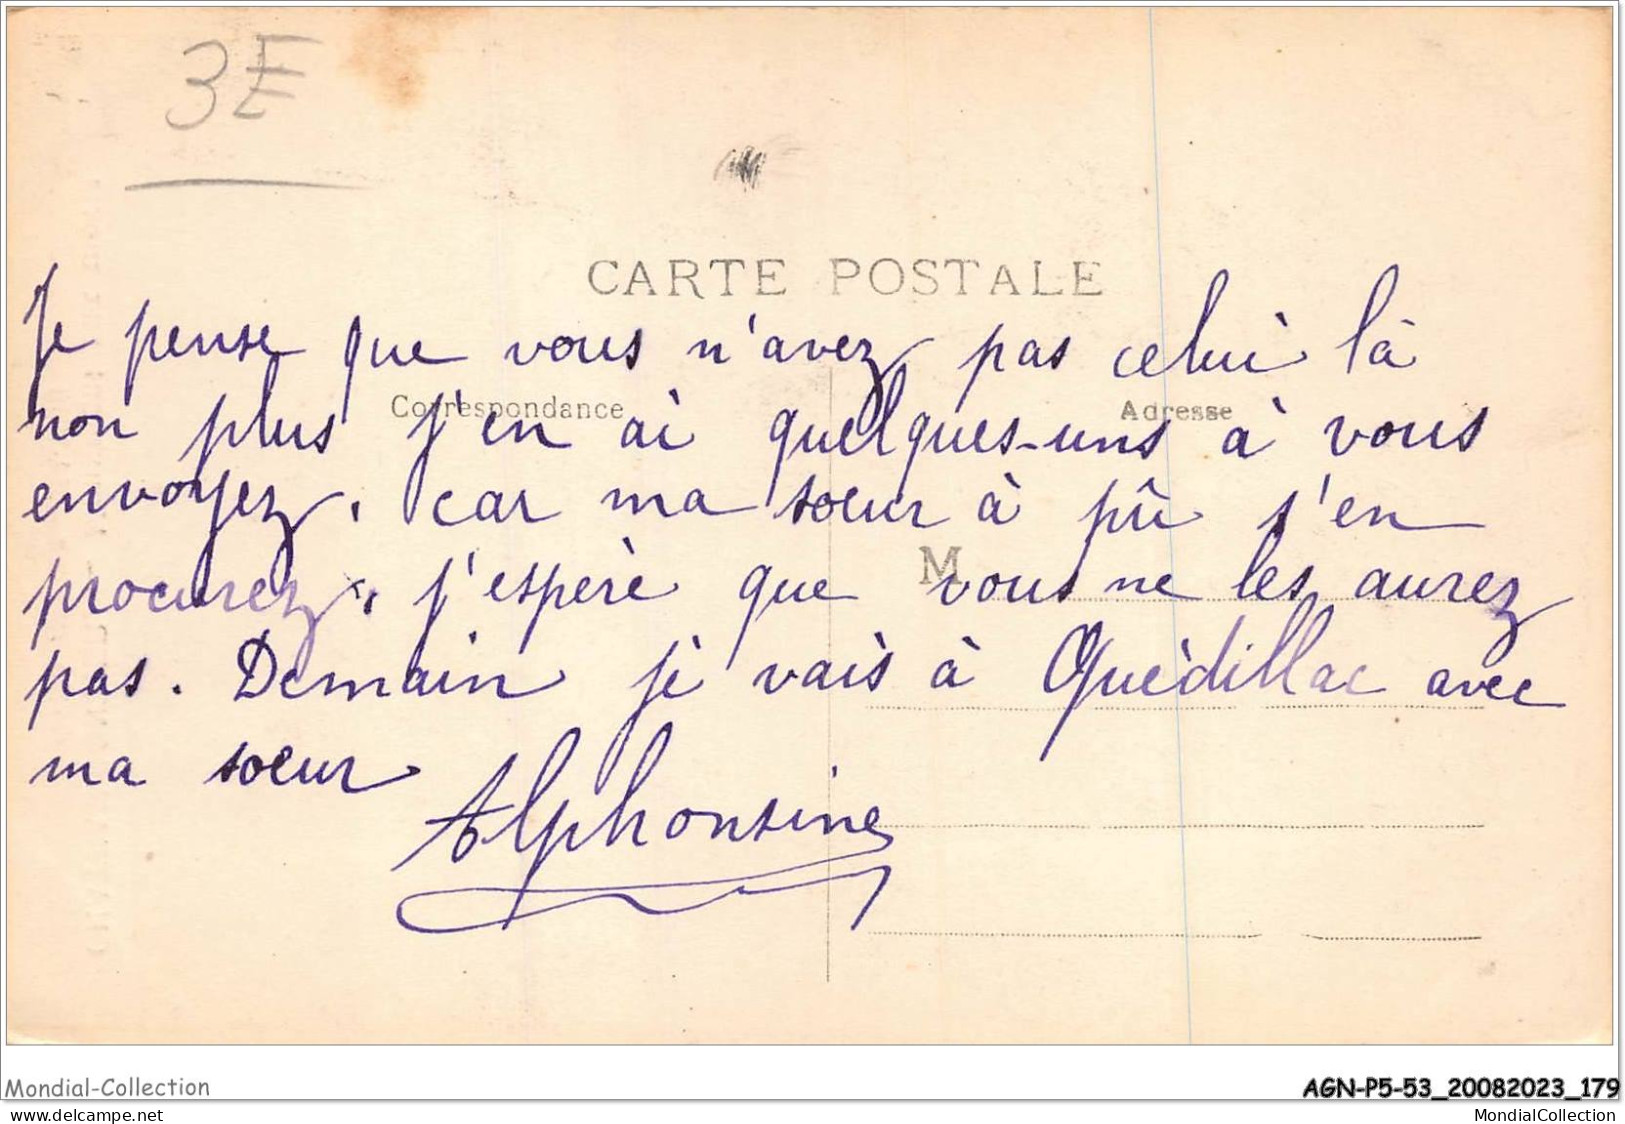 3E
CARTE POSTALE
Je pense que vous n'avez pas celui là
Correspondance
Adresse
non plus j'en ai quelques-uns à vous
envoyez, car ma soeur à pû s'en
procurez, j'espère que vous ne les aurez
M
pas. Demain je vais à Quèdillac avec
ma soeur
Alphonsine
Mondial-Collection
AGN-P5-53_20082023_179
www.delcampe.net
MondialCollection